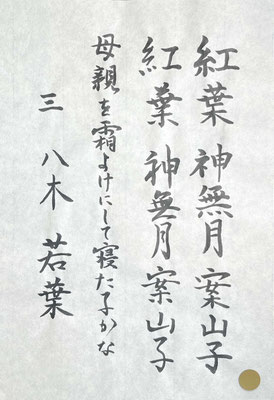 紅葉神無月案山子
紅葉神無月案山子
母親を霜よけにして寝た子かな
三 八木若葉